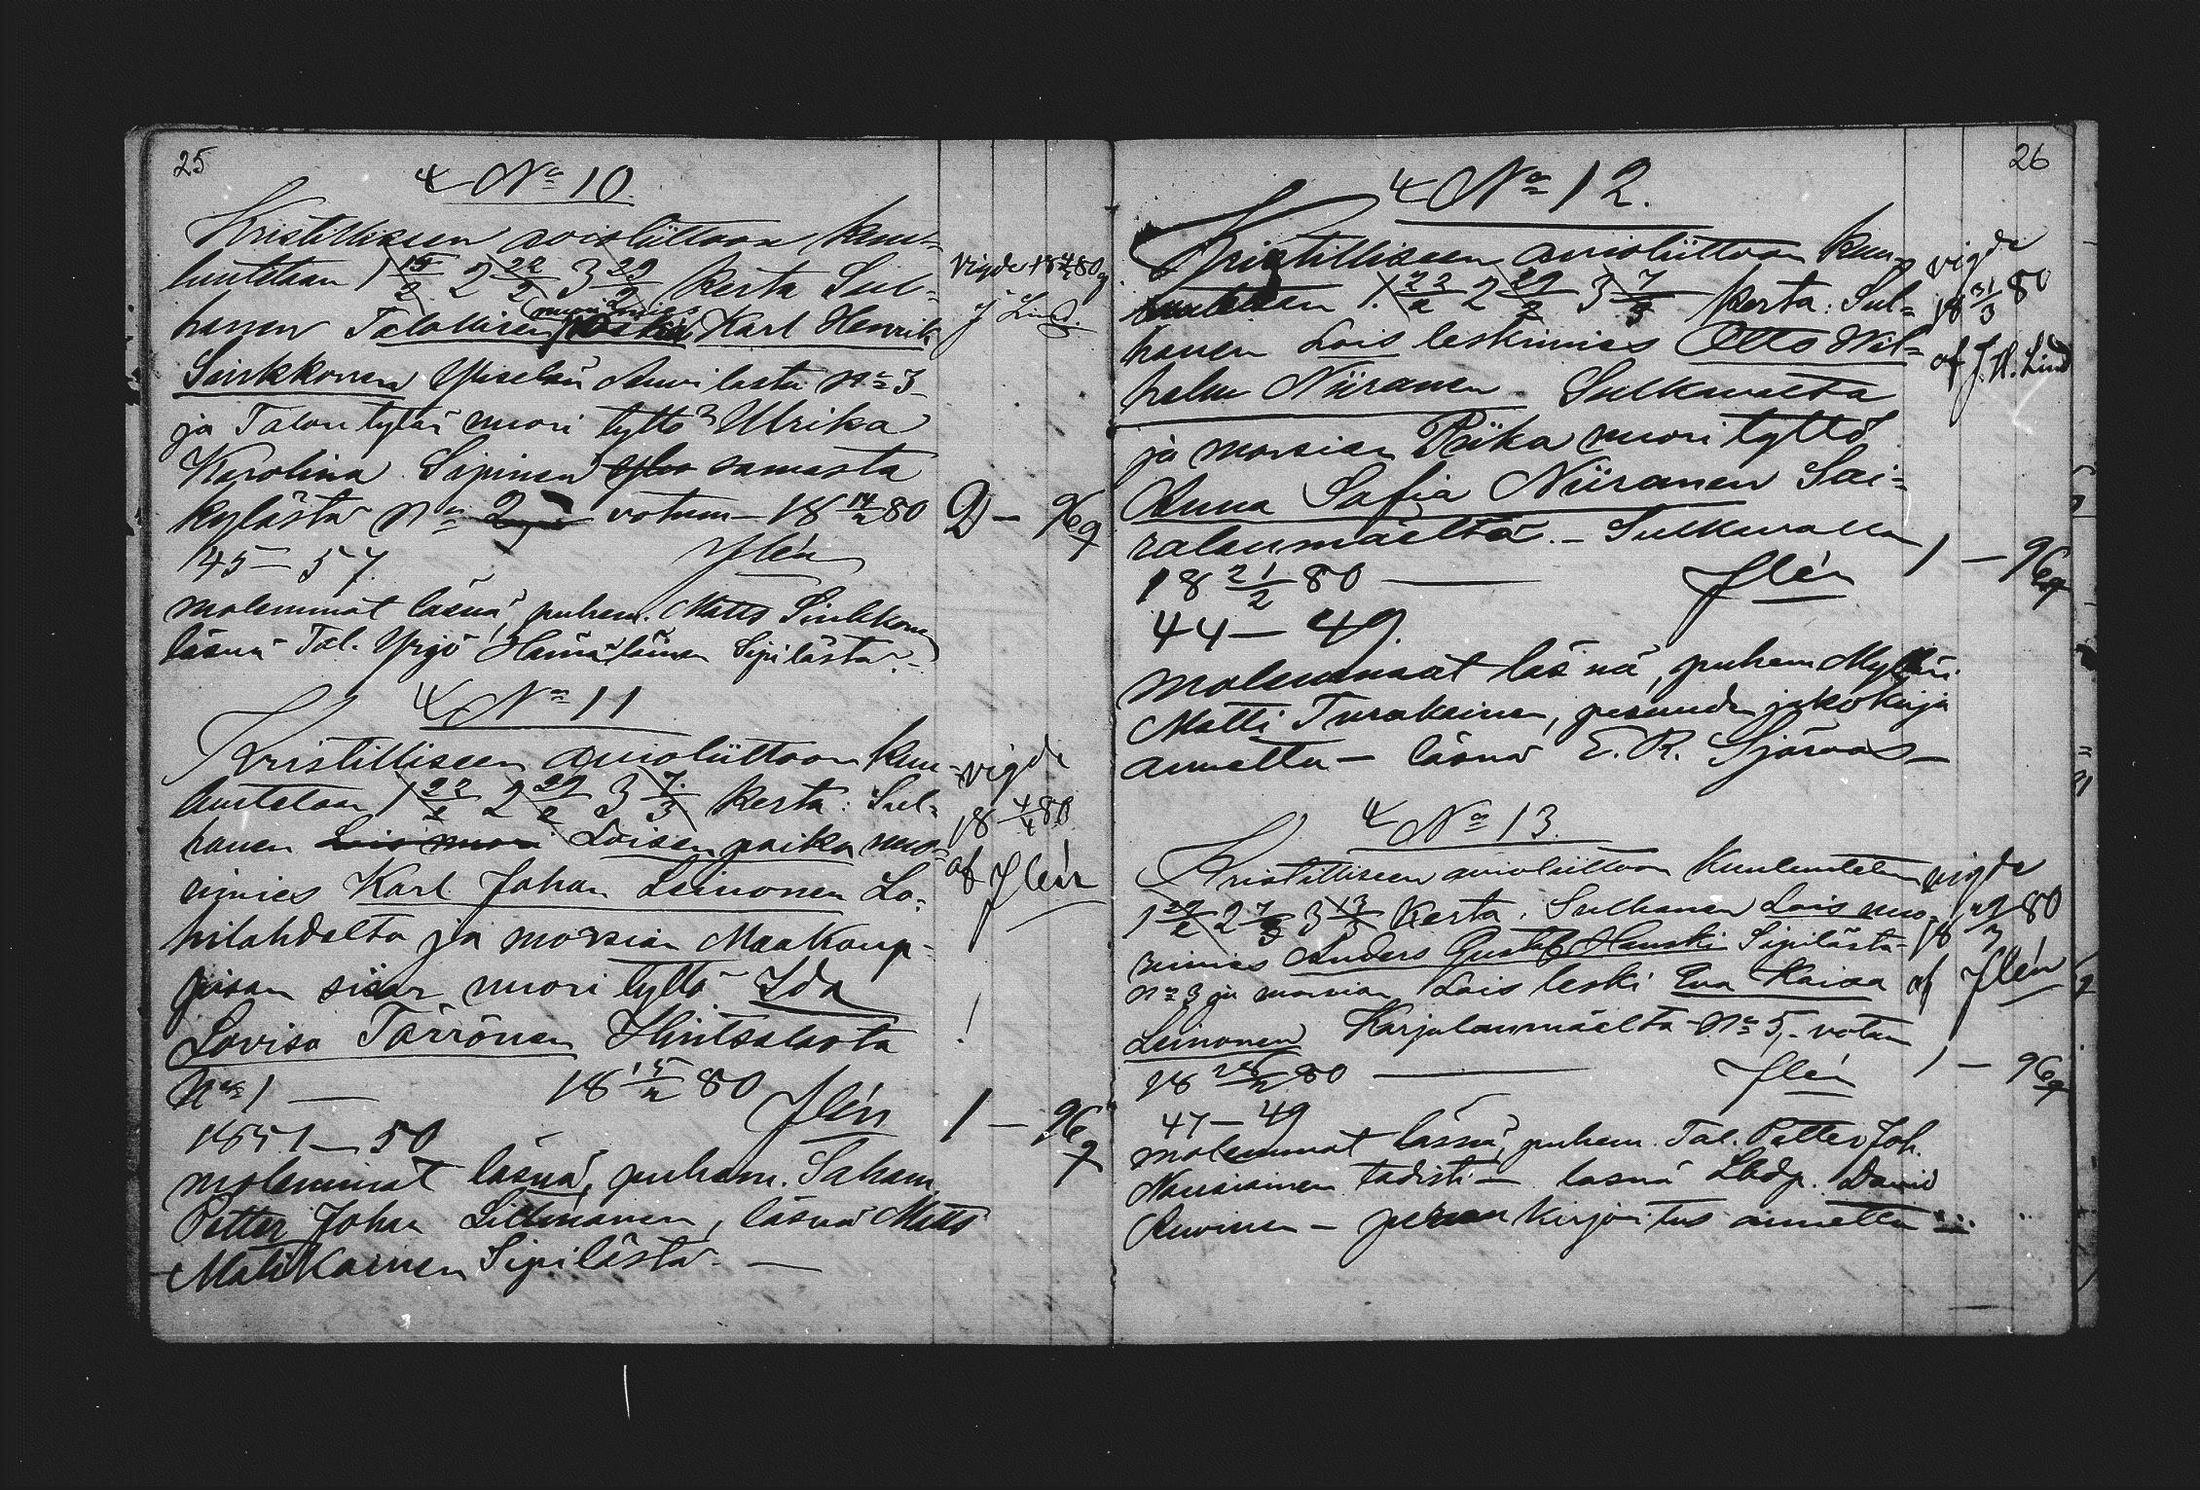 25
4 No 10
Kristilliseen avioliittoon kuu=
lutetaan 1 15/2 2 22/2 3 29/2 kerta Sul=
hanen Talollisen nuorimies Karl Henrik
Sinkkonen No 3
ja Talon tytär nuori tyttö Ulrika
Karolina Sipinen samasta
kylästä No 2 votum 18 14/2 80
45 – 57. Flén
molemmat läsnä, puhem. Matts Sinkkonen
läsnä Tal. Yrjö Hämäläinen Sipilästä. –
Vigde 18 80
J Lind
2 – 96
4 No 11
Kristilliseen avioliittoon kuu=
lutetaan 1 22/2 2 29/2 3 7/3 kerta: Sul=
hanen Loisen poika nuo=
rimies Karl Johan Leinonen Lo=
hilahdelta ja morsian Maakaup=
piaan sisar nuori tyttö Ida
Lovisa Törrönen Hintsalasta
No 1 — 18 15/2 80
Flén
1851 – 50
molemmat läsnä, puhem. Saham.
Petter Johan Littmanen, läsnä Matts
Matikainen Sipilästä. —
vigde
18 4/4 80
af Flén
1 – 96
26
4 No 12.
Kristilliseen avioliittoon kuu=
lutetaan 1. 22/2 2 29/2 3 7/3 kerta: Sul=
hanen Lois leskimies Otto Wil=
helm Niiranen Sulkavalta
ja morsian Piika nuori tyttö
Anna Sofia Niiranen Sai=
ralanmäeltä. – Sulkavalla
18 21/2 80 — Flén
44 – 49.
molemmat läsnä, puhem
Matti Turakainen, pesuude jakokirja
annettu – läsnä E. R. Sjöroos –
vigde
18 31/3 80
af J. H. Lind
1 – 96
4 No 13.
Kristilliseen avioliittoon kuulutetaan
1 29/2 2 7/3 3 13/3 kerta. Sulhanen Lois nuo=
rimies Anders Gustaf Hauski Sipilästä
No 3 ja morsian Lois leski Eva Kaisa
Leinonen Karjalanmäeltä No 5, – votum
18 80 — Flén
47 – 49
molemmat läsnä, puhem. Tal. Petter Joh.
Naurainen todisti – läsnä Lbdp. David
Auvinen – perunkirjoitus annettu
vigde
18 80
af Flén
1 – 96